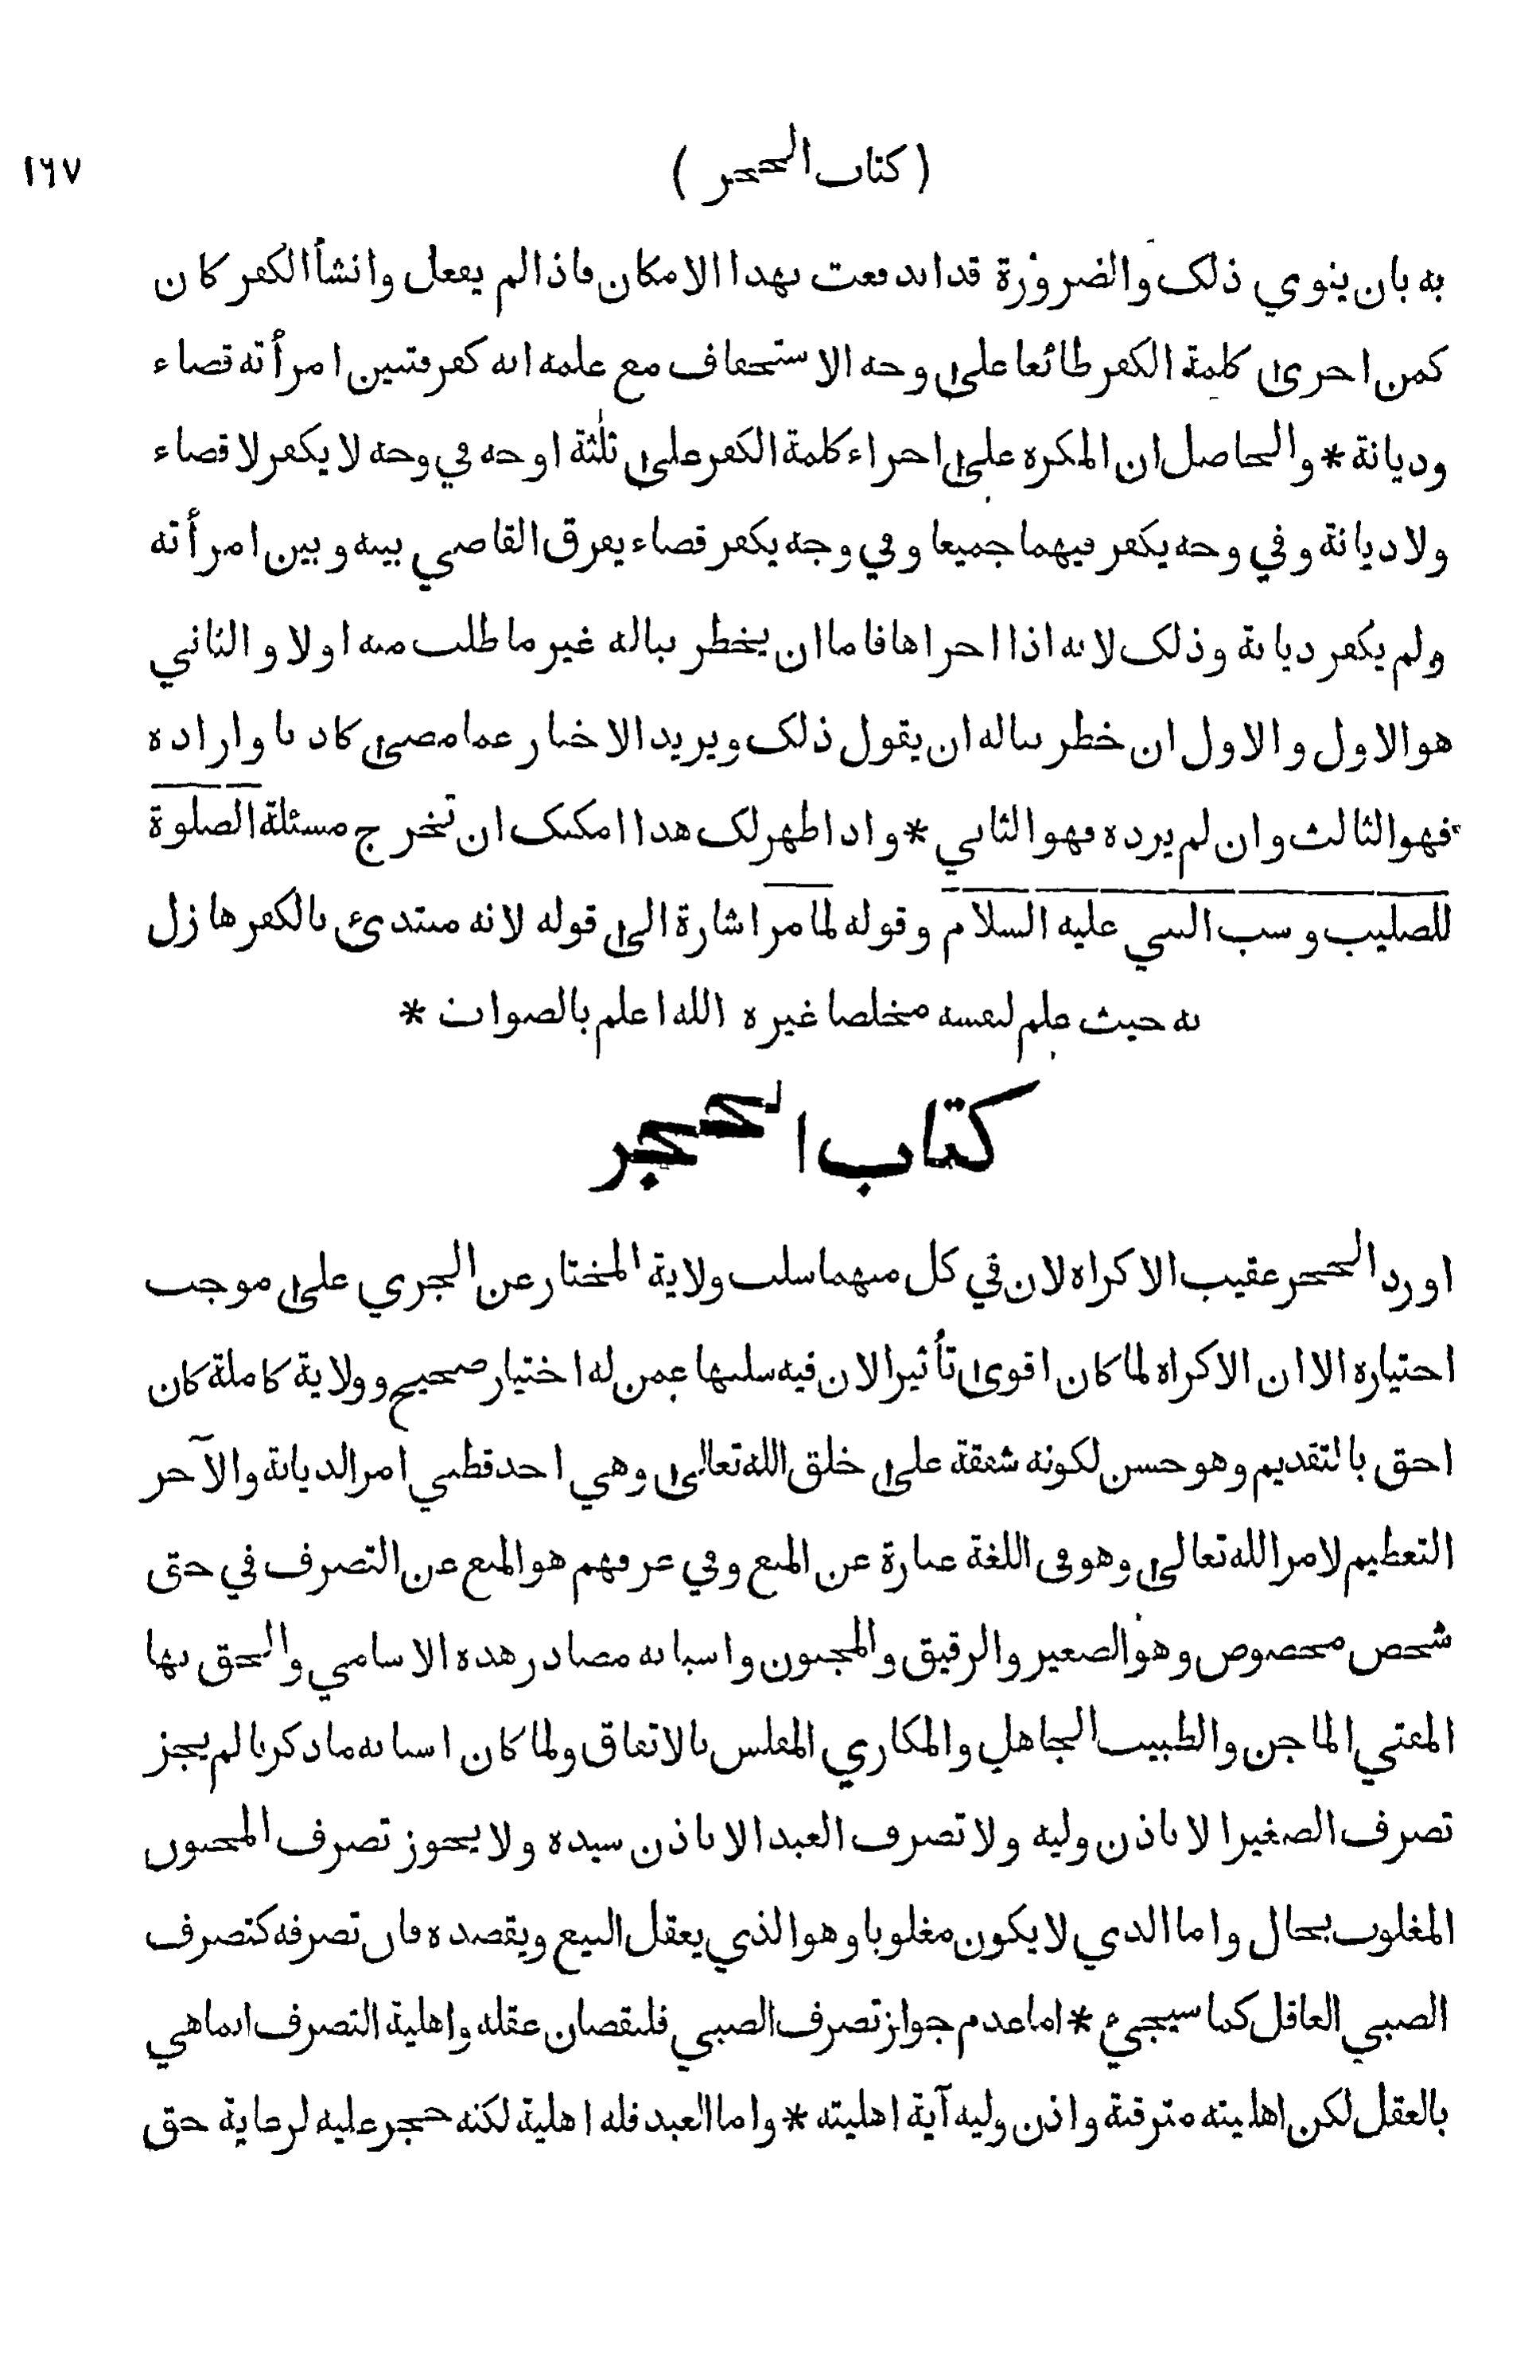 ( كتاب الحجر ) ١٦٧
به بان ينوي ذلك والضرورة قد اندفعت بهذا الامكان فاذا لم يفعل وانشأ الكفر كان
كمن اجرى كلمة الكفر طائعا على وجه الاستخفاف مع علمه انه كفر فتبين امرأته قضاء
وديانة * والحاصل ان المكره على اجراء كلمة الكفر على ثلثة اوجه في وجه لا يكفر لا قضاء
ولا ديانة وفي وجه يكفر فيهما جميعا وفي وجه يكفر قضاء يفرق القاضي بينه وبين امرأته
ولم يكفر ديانة وذلك لانه اذا اجراها فاما ان يخطر بباله غير ما طلب منه اولا والثاني
هو الاول والاول ان خطر بباله ان يقول ذلك ويريد الاخبار عما مضى كاذبا واراده
فهو الثالث وان لم يرده فهو الثاني * واذا ظهر لك هذا امكنك ان تخرج مسئلة الصلوة
للصليب وسب النبي عليه السلام وقوله لما مر اشارة الى قوله لانه مبتدئ بالكفر هازل
به حيث علم لنفسه مخلصا غيره الله اعلم بالصواب *
كتاب الحجر
اورد الحجر عقيب الاكراه لان في كل منهما سلب ولاية المختار عن الجري على موجب
اختياره الا ان الاكراه لما كان اقوى تأثيرا لان فيه سلبها عمن له اختيار صحيح وولاية كاملة كان
احق بالتقديم وهو حسن لكونه شفقة على خلق الله تعالى وهي احد قطبي امر الديانة والآخر
التعظيم لامر الله تعالى وهو في اللغة عبارة عن المنع وفي عرفهم هو المنع عن التصرف في حق
شخص مخصوص وهو الصغير والرقيق والمجنون واسبابه مصادر هذه الاسامي والحق بها
المفتي الماجن والطبيب الجاهل والمكاري المفلس بالاتفاق ولما كان اسبابه ما ذكرنا لم يجز
تصرف الصغير الا باذن وليه ولا تصرف العبد الا باذن سيده ولا يجوز تصرف المجنون
المغلوب بحال واما الذي لا يكون مغلوبا وهو الذي يعقل البيع ويقصده فان تصرفه كتصرف
الصبي العاقل كما سيجيء * اما عدم جواز تصرف الصبي فلنقصان عقله واهلية التصرف انما هي
بالعقل لكن اهليته مترقبة واذن وليه آية اهليته * واما العبد فله اهلية لكنه حجر عليه لرعاية حق